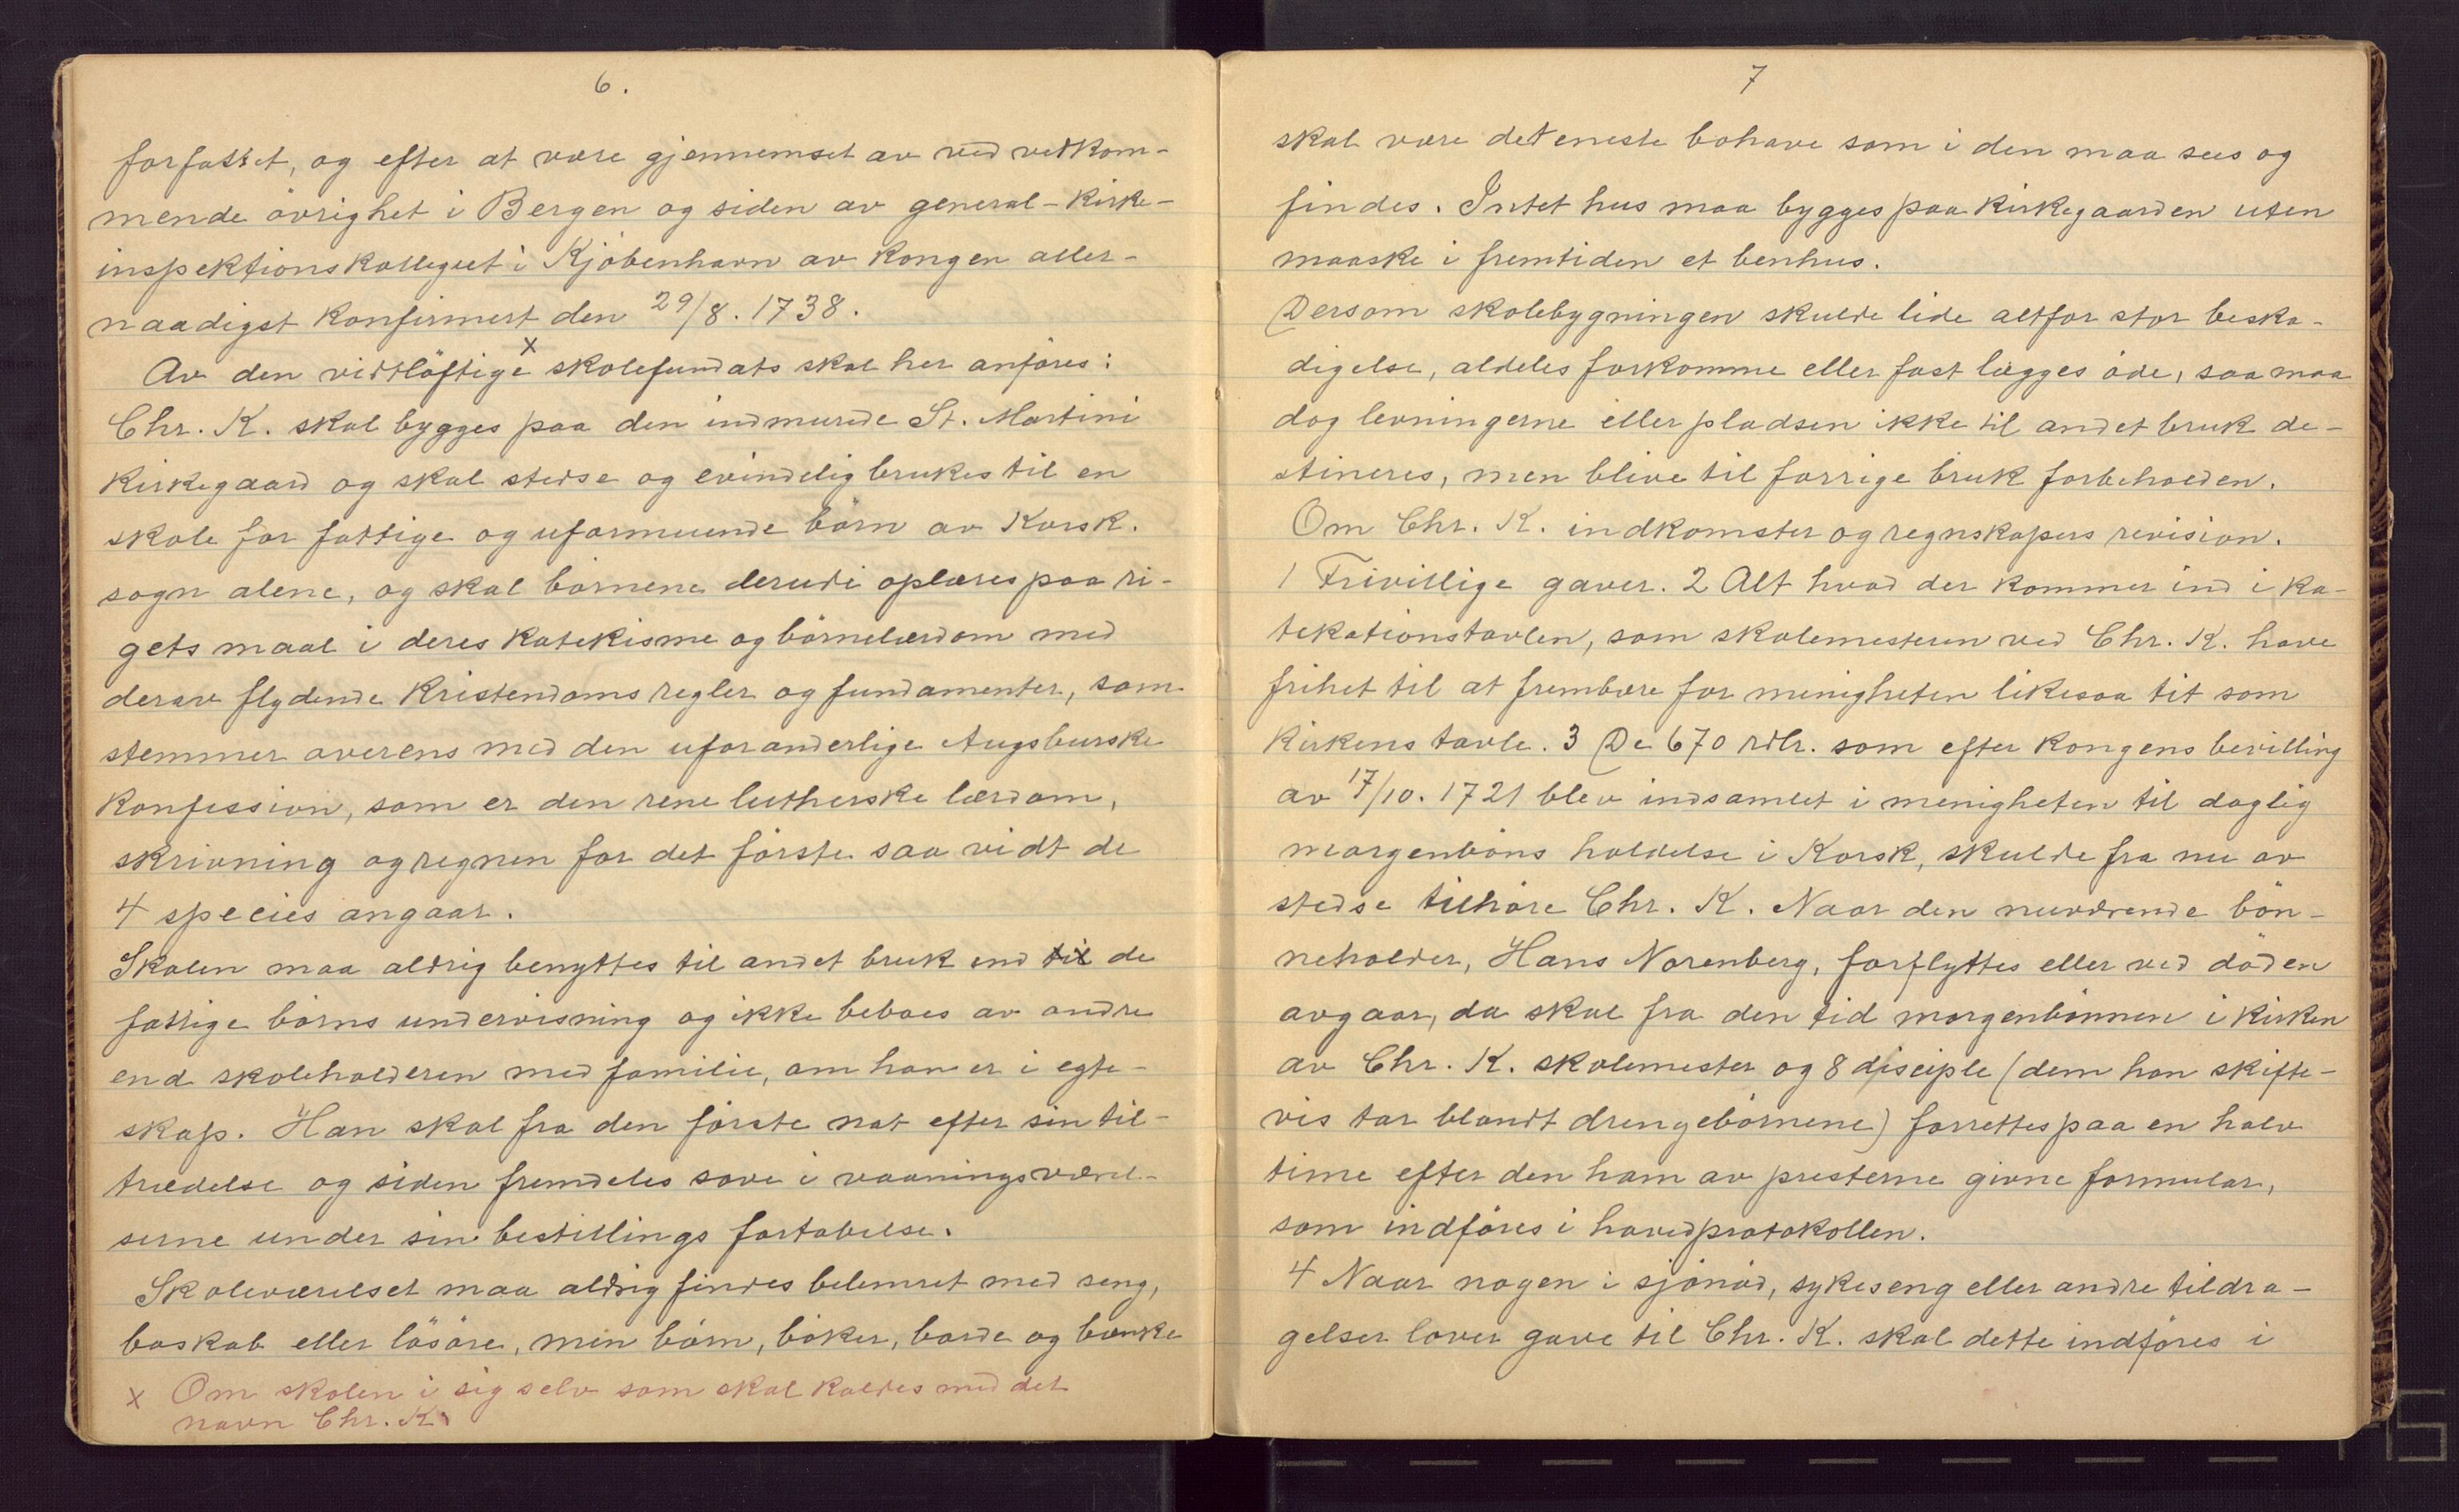 6.
forfattet, og efter at være gjennemset av ved vedkom-
mende övrighet i Bergen og siden av general-kirke-
inspektionskolleguet i Kjöbenhavn av kongen aller-
naadigst konfirmert den 29/8. 1738.
Av den vidtlöftige x skolefundats skal her anföres:
Chr. K. skal bygges paa den indmurede St. Martini
kirkegaard og skal stedse og evindelig brukes til en
skole for fattige og uformuende börn av Korsk.
sogn alene, og skal börnene derudi oplæres paa ri-
gets maal i deres katekisme og börnelærdom med
derav flydende kristendoms regler og fundamenter, som
stemmer overens med den uforanderlige Augsburske
konfession, som er den rene lutherske lærdom,
skrivning og regnen for det förste saa vidt de
4 species angaar.
Skolen maa aldrig benyttes til andet bruk end til de
fattige börns undervisning og ikke beboes av andre
end skoleholderen med familie, om han er i egte-
skap. Han skal fra den förste nat efter sin til-
trædelse og siden fremdeles sove i vaaningsværel-
serne under sin bestillings fortabelse.
Skoleværelset maa aldrig findes belemret med seng,
boskab eller lösöre, men börn, böker, borde og bænke
x Om skolen i sig selv som skal kaldes med det
navn Chr. K.
7
skal være det eneste bohave som i den maa sees og
findes. Intet hus maa bygges paa kirkegaarden uten
maaske i fremtiden et benhus.
Dersom skolebygningen skulde lide altfor stor beska-
digelse, aldeles forkomme eller fast lægges öde, saa maa
dog levningerne eller pladsen ikke til andet bruk de-
stineres, men blive til forrige bruk forbeholden.
Om Chr. K. indkomster og regnskapers revision.
1 Frivillige gaver. 2 Alt hvad der kommer ind i ka-
tekationstavlen, som skolemesteren ved Chr. K. have
frihet til at frembære for menigheten likesaa tit som
kirkens tavle. 3 De 670 rdlr. som efter kongens bevilling
av 17/10. 1721 blev indsamlet i menigheten til daglig
morgenböns holdelse i Korsk, skulde fra nu av
stedse tilhöre Chr. K. Naar den nuværende bön-
neholder, Hans Norenberg, forflyttes eller ved döden
avgaar, da skal fra den tid morgenbönnen i kirken
av Chr. K. skolemester og 8 disciple (dem han skifte-
vis tar blandt drengebörnene) forrettes paa en halv
time efter den ham av presterne givne formular,
som indföres i hovedprotokollen.
4 Naar nogen i sjönöd, sykeseng eller andre tildra-
gelser lover gave til Chr. K. skal dette indföres i